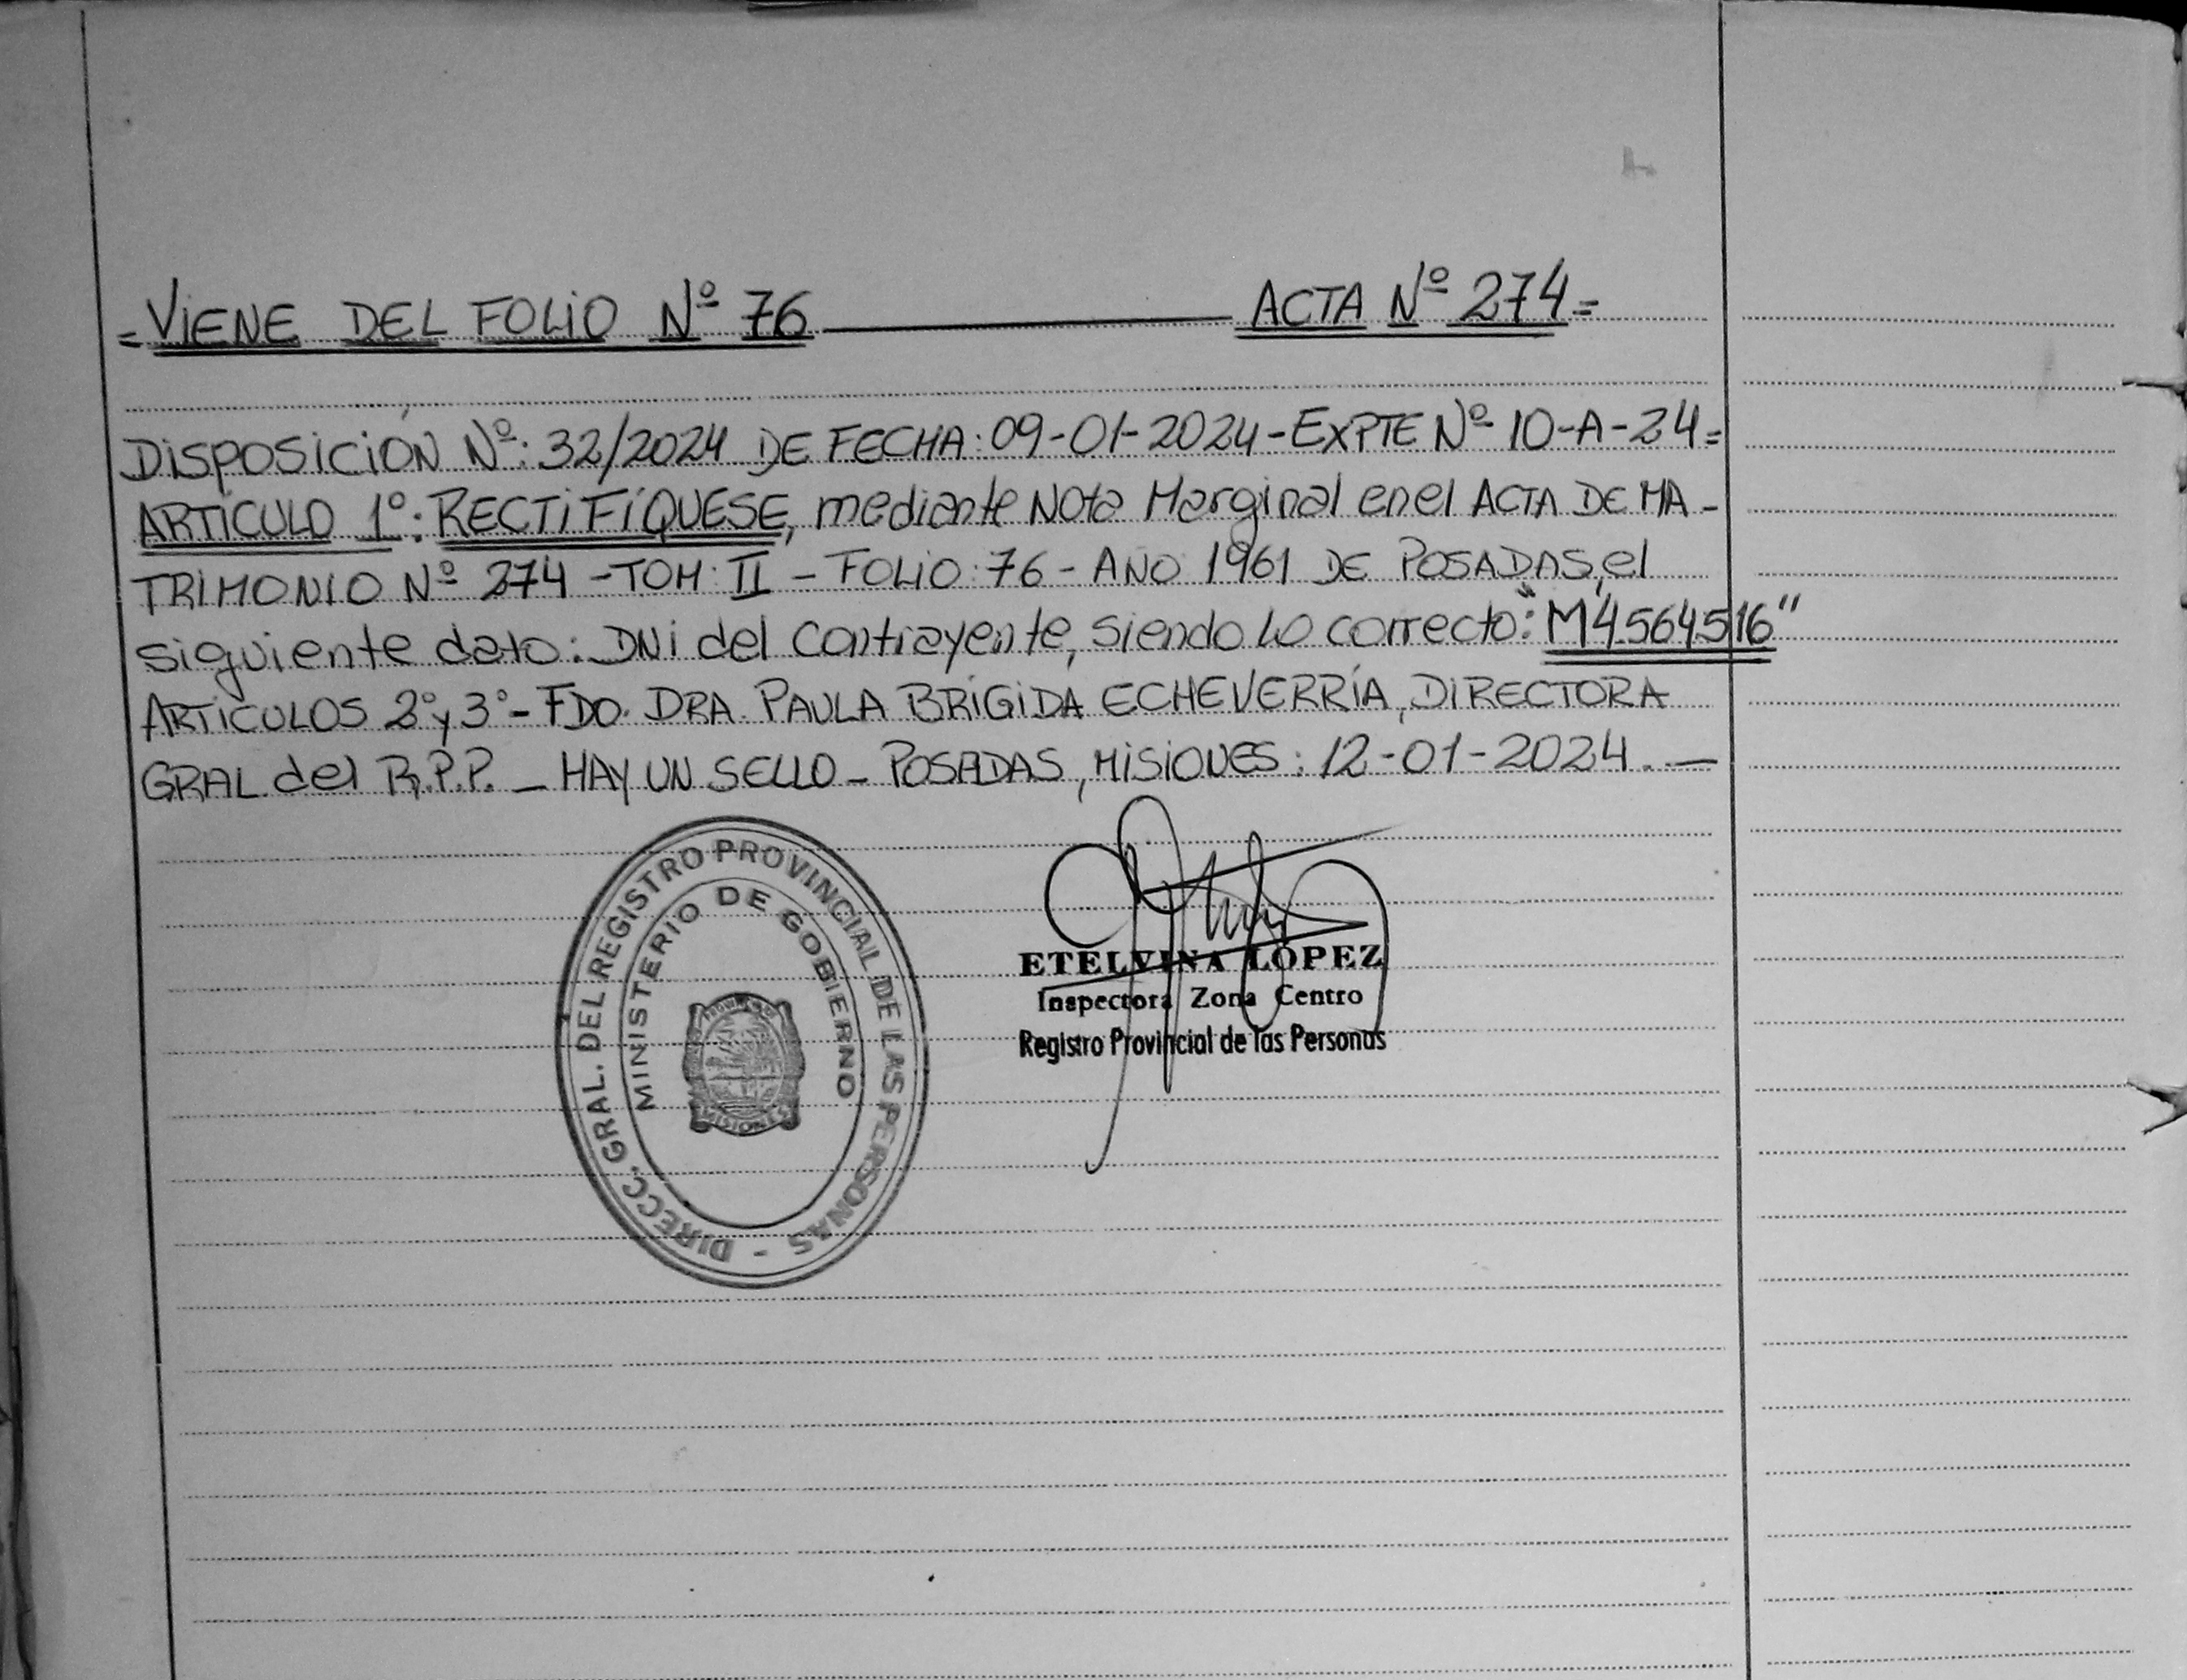 = VIENE DEL FOLIO Nº 76 ACTA Nº 274 =
DISPOSICIÓN Nº: 32/2024 DE FECHA: 09-01-2024 - EXPTE Nº 10-A-24 =
ARTÍCULO 1º: RECTIFÍQUESE, mediante Nota Marginal en el ACTA DE MA-
TRIMONIO Nº 274 - TOM: II - FOLIO: 76 - AÑO 1961 DE POSADAS, el
siguiente dato: DNI del Contrayente, siendo Lo correcto: "M4564516"
ARTÍCULOS 2º y 3º - FDO. DRA. PAULA BRÍGIDA ECHEVERRÍA, DIRECTORA
GRAL del R.P.P. - HAY UN SELLO - POSADAS, MISIONES: 12-01-2024. -
DIRECC. GRAL. DEL REGISTRO PROVINCIAL DE LAS PERSONAS -
MINISTERIO DE GOBIERNO
MISIONES
ETELVINA LÓPEZ
Inspectora Zona Centro
Registro Provincial de las Personas